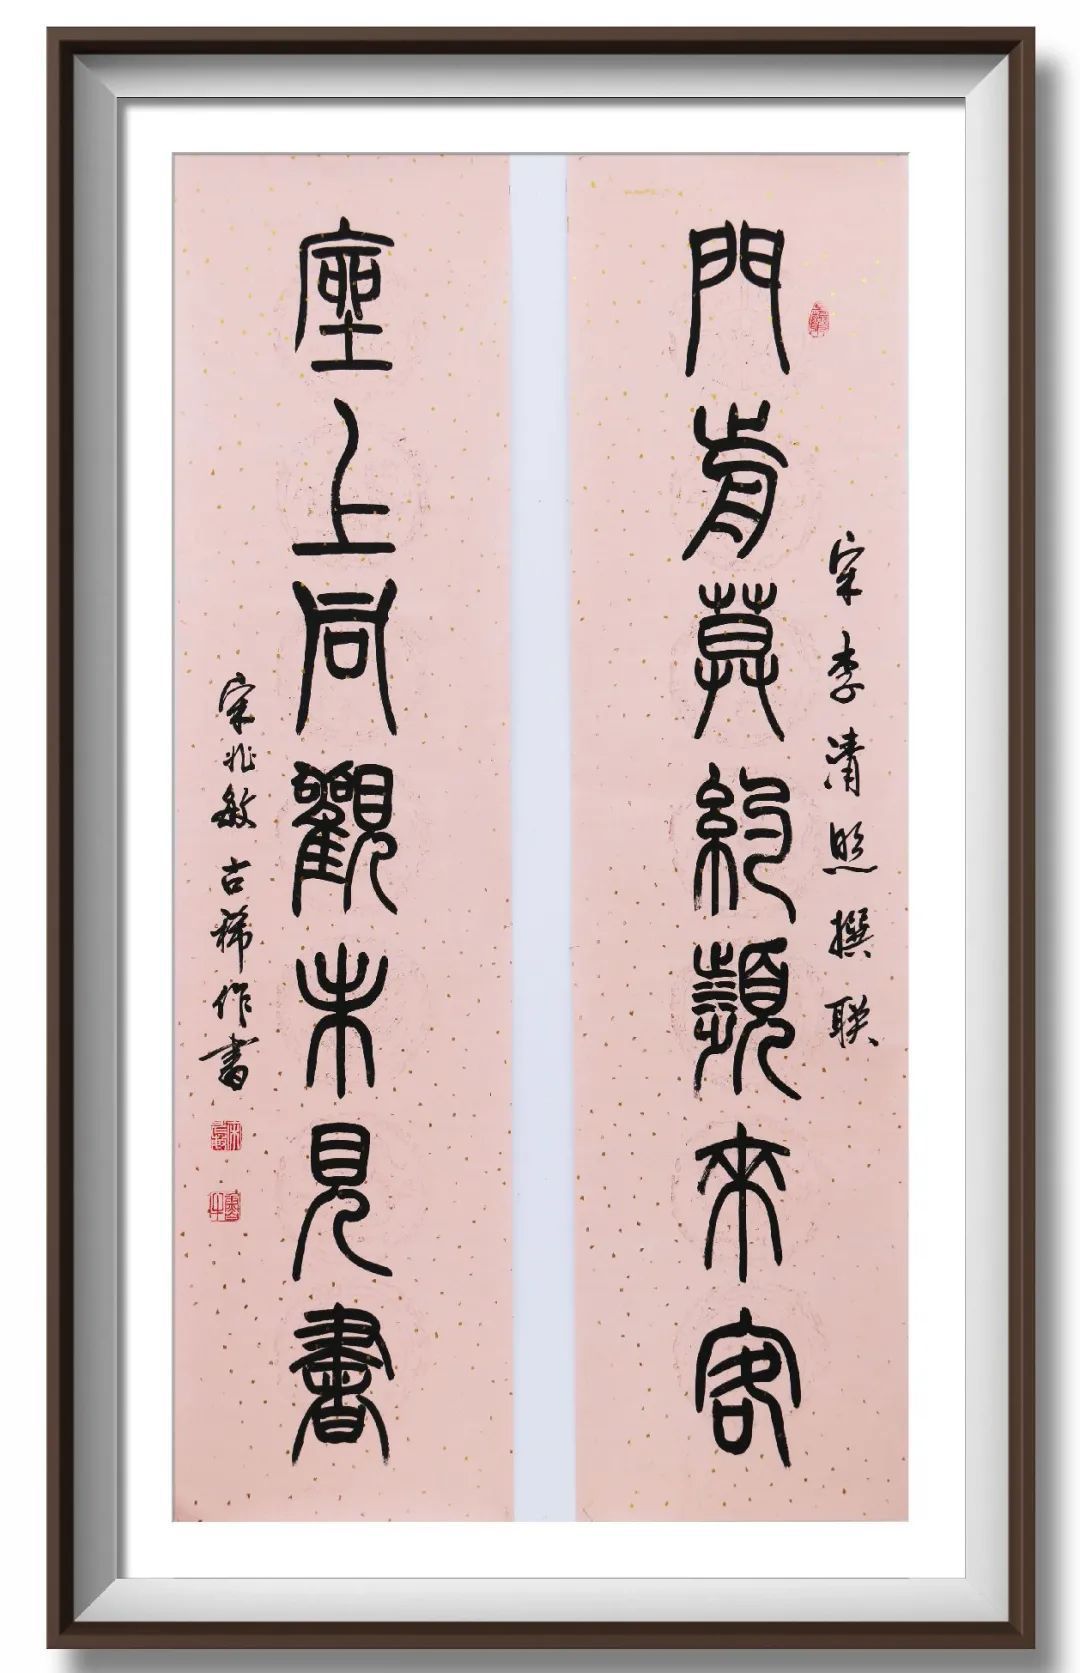 宋李清照撰联
門有莫約頻來客
座上同觀未見書
宋兆敏古稀作書